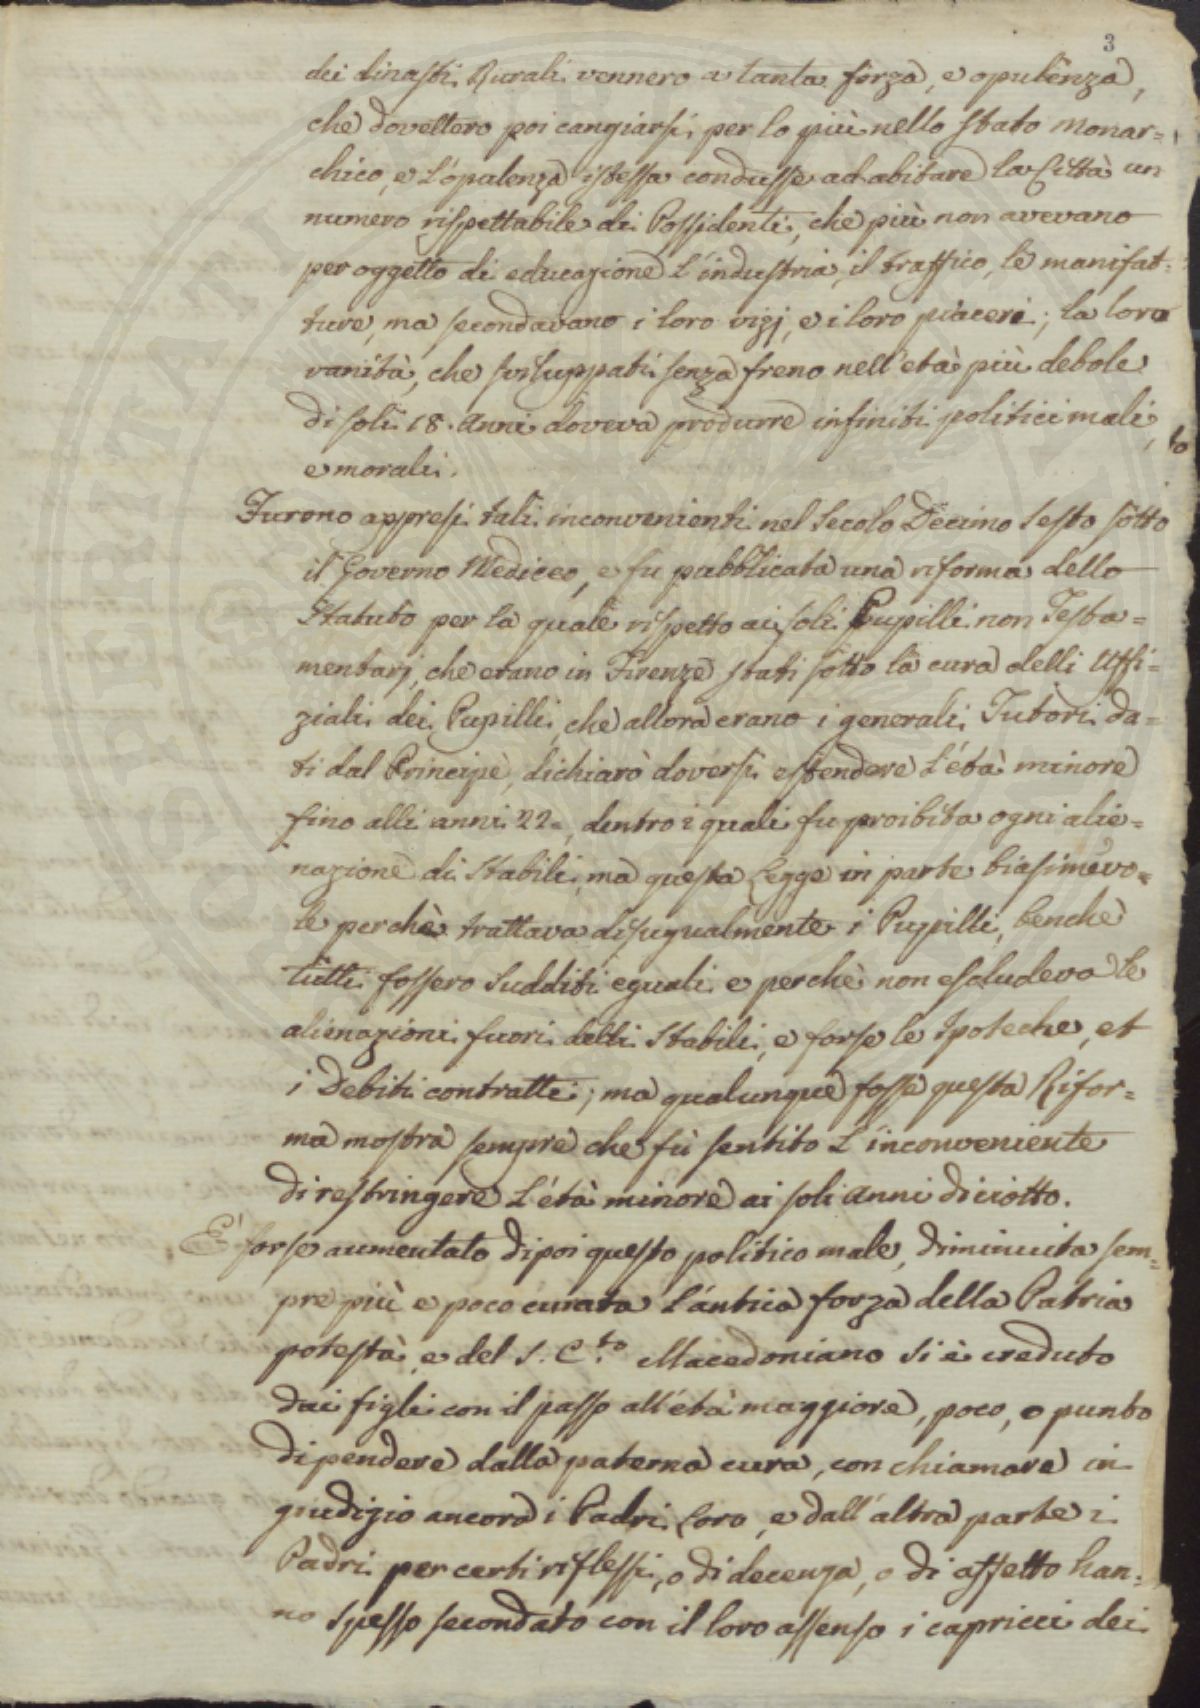 3
dei dinasti Rurali vennero a tanta forza, e opulenza,
che dovettero poi cangiarsi per lo più nello stato monar=
chico, e l'opulenza istessa condusse ad abitare la Città un
numero rispettabile di Possidenti, che più non avevano
per oggetto di educazione l'industria, il traffico, le manifat=
ture, ma secondavano i loro vizj, e i loro piaceri; la loro
vanità, che sviluppati senza freno nell'età più debole
di soli 18. anni doveva produrre infiniti politici mali,
e morali.
Furono appresi tali inconvenienti nel Secolo Decimo Sesto sotto
il Governo Mediceo, e fu pubblicata una riforma dello
Statuto per la quale rispetto ai soli Pupilli non Testa=
mentarj, che erano in Firenze stati sotto la cura delli Uffi=
ziali dei Pupilli che allora erano i generali Tutori da=
ti dal Principe, dichiarò doversi estendere l'età minore
fino alli anni 22=, dentro i quali fu proibita ogni alie=
nazione di Stabili, ma questa Legge in parte biasimevo=
le perchè trattava disugualmente i Pupilli, benchè
tutti fossero Sudditi eguali e perchè non escludeva le
alienazioni fuori delli Stabili, e forse le Ipoteche, et
i Debiti contratti; ma qualunque fosse questa Rifor=
ma mostra sempre che fù sentito l'inconveniente
di restringere l'età minore ai soli anni diciotto.
È forse aumentato dipoi questo politico male, diminuita sem=
pre più e poco curata l'antica forza della Patria
potestà, e del S. C.to Macedoniano si è creduto
dai figli con il passo all'età maggiore, poco, o punto
dipendere dalla paterna cura, con chiamare in
giudizio ancora i Padri Loro, e dall'altra parte i
Padri per certi riflessi, o di decenza, o di affetto han=
no spesso secondato con il loro assenso i capricci dei